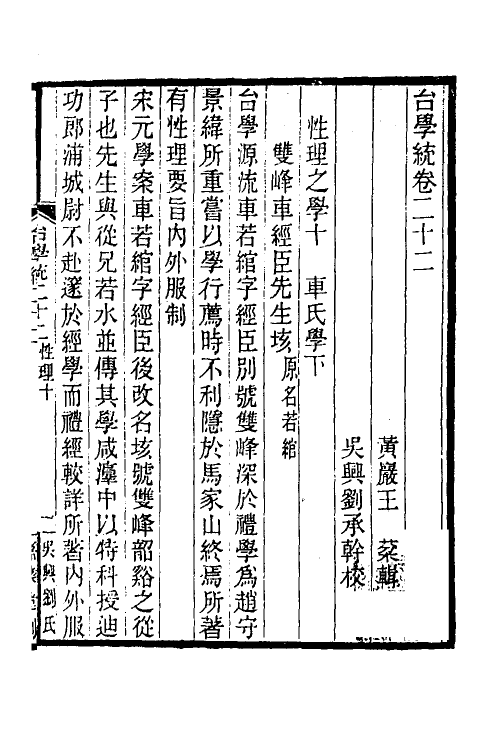 台學統卷二十二
黃巖王 棻輯
吳興劉承幹校
性理之學十 車氏學下
雙峰車經臣先生垓原名若綰
台學源流車若綰字經臣別號雙峰深於禮學爲趙守
景緯所重嘗以學行薦時不利隱於馬家山終焉所著
有性理要旨內外服制
宋元學案車若綰字經臣後改名垓號雙峰韶谿之從
子也先生與從兄若水並傳其學咸淳中以特科授迪
功郎浦城尉不赴邃於經學而禮經較詳所著內外服
台學統二十二 性理十
一 吳興劉氏